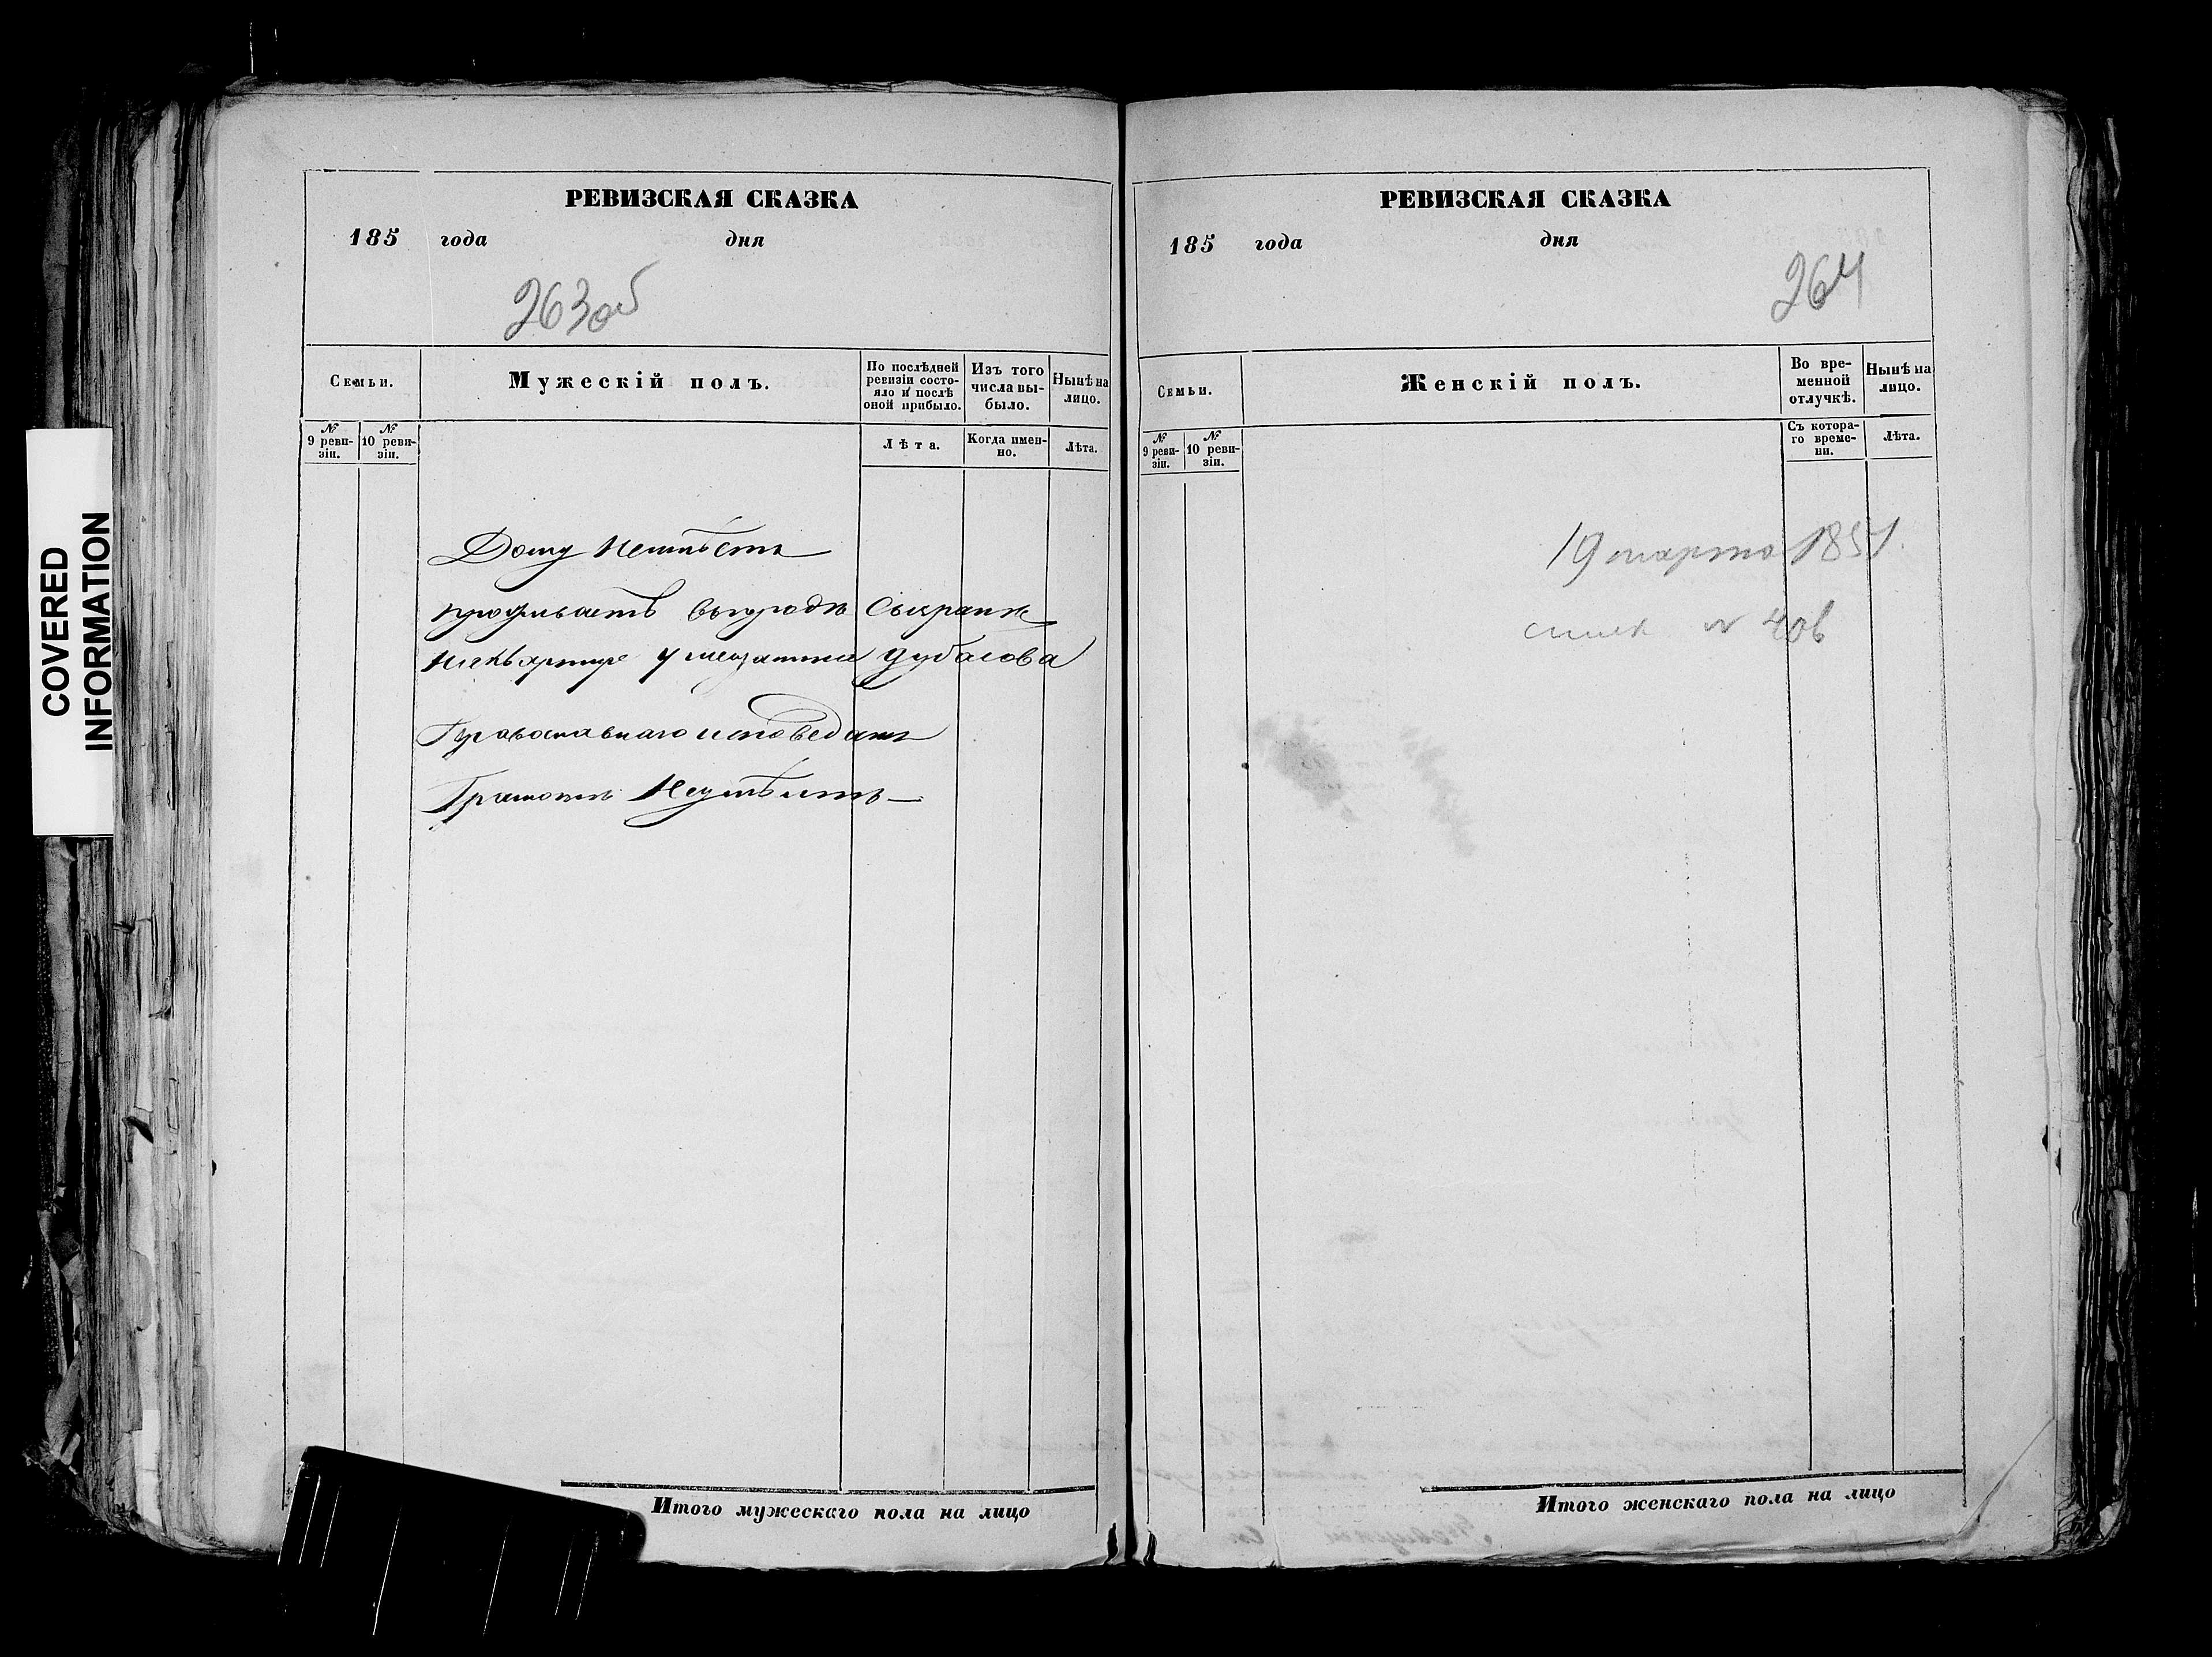 COVERED
INFORMATION
РЕВИЗСКАЯ СКАЗКА
185 года дня
263 об
Семьи.
Мужескій полъ.
По послѣдней
ревизіи состо-
яло и послѣ
оной прибыло.
Изъ того
числа вы-
было.
Нынѣ на
лицо.
№
9 реви-
зіи.
№
10 реви-
зіи.
Лѣта.
Когда имен-
но.
Лѣта.
Дому Неимѣетъ
проживаетъ вгородѣ Сызранѣ
на квартире у мещанина Дубасова
Православнаго исповедания
Грамоте Неумѣитъ
Итого мужескаго пола на лицо
РЕВИЗСКАЯ СКАЗКА
185 года дня
264
Семьи.
Женскій полъ.
Во вре-
менной
отлучкѣ.
Нынѣ на
лицо.
№
9 реви-
зіи.
№
10 реви-
зіи.
Съ котора-
го време-
ни.
Лѣта.
19 марта 1851.
№ 406
Итого женскаго пола на лицо